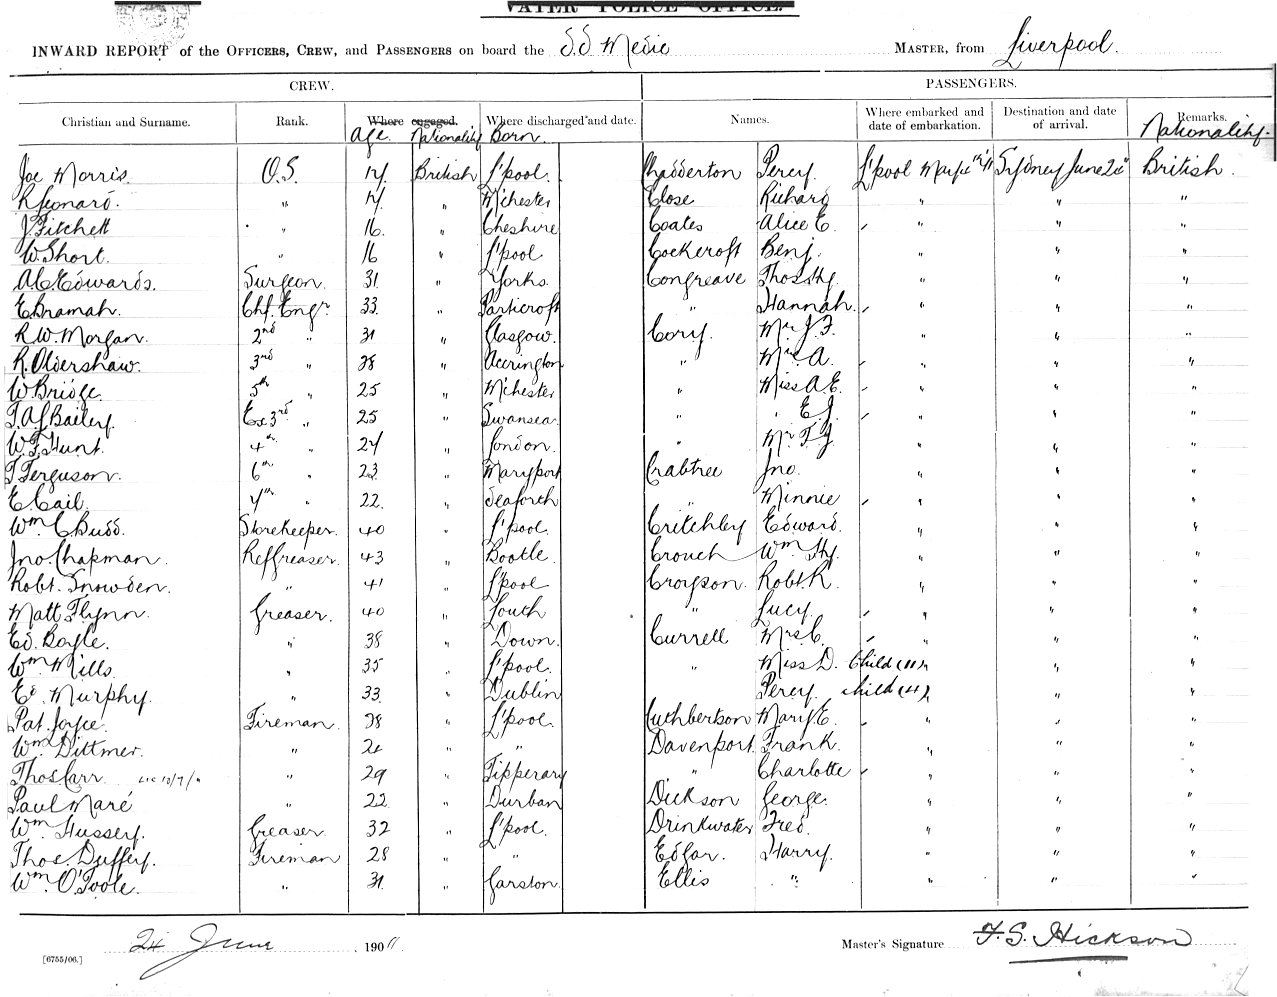 WATER POLICE OFFICE.
INWARD REPORT of the OFFICERS, CREW, and PASSENGERS on board the SS Medic MASTER, from Liverpool.
CREW. PASSENGERS.
Christian and Surname. Rank. Where engaged. Where discharged and date. Names. Where embarked and date of embarkation. Destination and date of arrival. Remarks.
Age. Nationality Born Nationality.
Joe Morris O.S. 17. British L'pool. Chadderton Percy. L'pool May Sydney June 24" British.
R Leonard. " 17 " M'chester Close Richard " " "
J. Fitchett " 16 " Cheshire Coates Alice E. " " "
W. Short. " 16 " L'pool Cockcroft Benj. " " "
A.C. Edwards. Surgeon. 31 " Yorks. Congreave Thos Hy. " " "
E. Bramah. Chf. Engr 33 " Patricroft " Hannah. " " "
R.W. Morgan. 2nd " 31 " Glasgow. Cory. Mr. J.F. " " "
R. Oldershaw. 3rd " 28 " Accrington " Mrs A. " " "
W Bridge. 5th " 25 " M'chester " Miss A.E. " " "
T.A.J. Bailey. Ex 3rd " 25 " Swansea. " " E J. " " "
W.F. Hunt. 4th " 24 " London. " Mr F J. " " "
T Ferguson. 6th " 23 " Maryport Crabtree Jno. " " "
E. Cail. 7th " 22 " Seaforth " Minnie " " "
Wm C. Budd. Storekeeper. 40 " L'pool. Critchley Edward. " " "
Jno. Chapman. Ref Greaser. 43 " Bootle. Crouch Wm Hy. " " "
Robt. Snowden. " 41 " L'pool Croyson. Robt. R. " " "
Matt Flynn. Greaser. 40 " Louth " Lucy. " " "
Ed. Boyle. " 38 " Down. Currell Mrs C. " " "
Wm Mills. " 35 " L'pool. " Miss D. Child (11) " " "
Ed Murphy. " 33 " Dublin Percy. child (4) " " "
Pat. Joyce. Fireman. 28 " L'pool. Cuthbertson Mary E. " " "
Wm Dittmer. " 21 " " Davenport. Frank. " " "
Thos Carr " 29 " Tipperary " Charlotte " " "
Paul Maré " 22 " Durban Dickson George. " " "
Wm Hussey. Greaser. 32 " L'pool. Drinkwater Fred. " " "
Thos. Duffey. Fireman 28 " " Edgar. Harry. " " "
Wm. O'Toole. " 31 " Garston. Ellis " " " "
24 June , 1911 Master's Signature F. S. Hickson
[6755/06.]